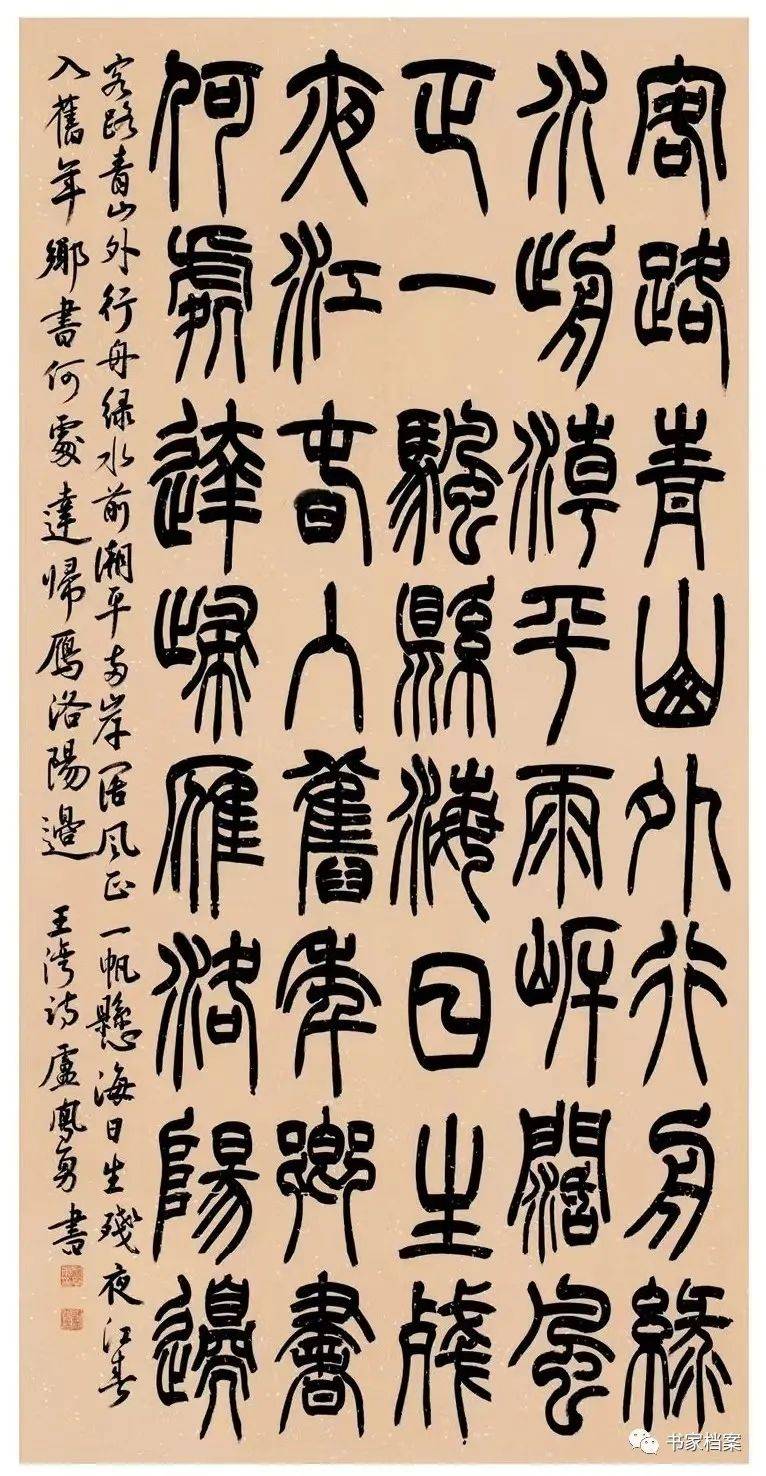 客路青山外行舟綠
水前潮平兩岸闊風
正一颿縣海日生殘
夜江春入舊年鄉書
何處達歸雁洛陽邊
客路青山外行舟绿水前潮平两岸阔风正一帆懸海日生殘夜江春
入舊年鄉書何處達帰鴈洛陽邊 王湾诗 盧鳳勇書
书家档案